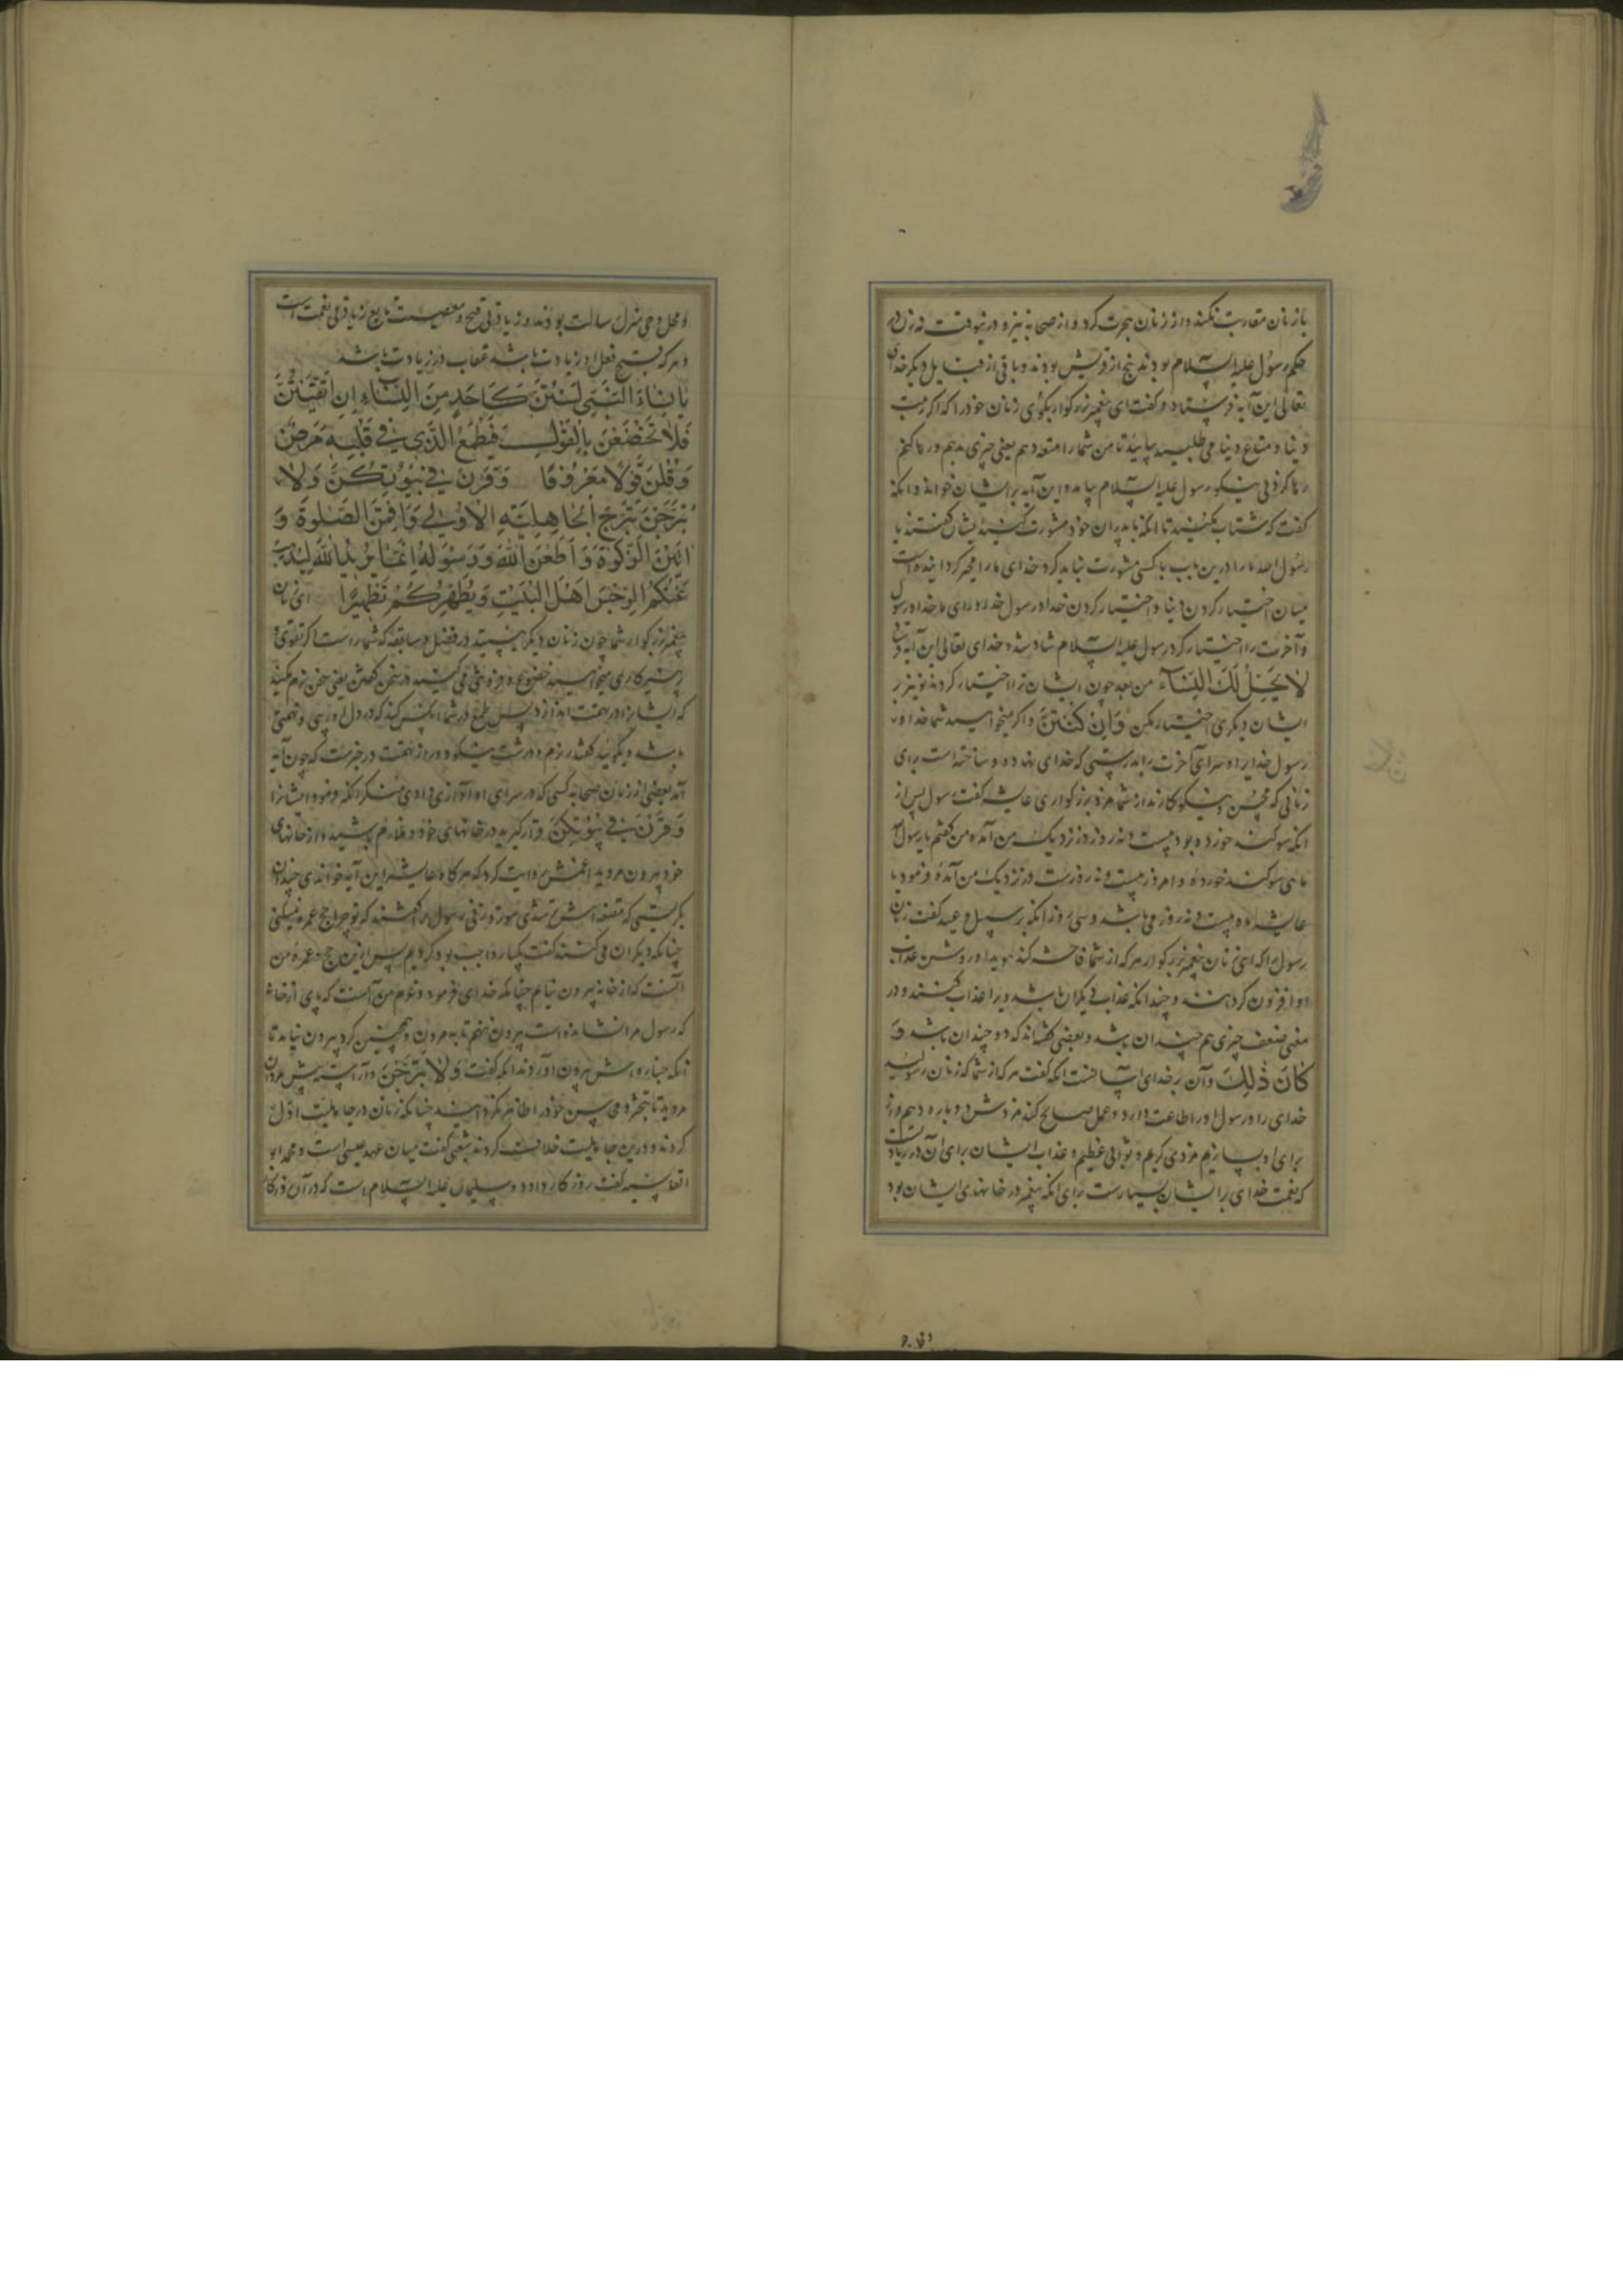 با زنان مقاربت نکند و از زنان هجرت کرد و از صحابه نیز و در نیوقت نه زن در
حکم رسول علیه السلام بودند پنج از قریش بودند و باقی از قبایل دیگر خدای
تعالی این آیه فرستاد و گفت ای پیغمبر بزرگوار بگوی زنان خود را که اگر زینت
دنیا و متاع دنیا می طلبید بیایید تا من شما را متعه دهم یعنی چیزی بدهم و رها کنم
رها کردنی نیکو رسول علیه السلام بیامد و این آیه بر ایشان خواند و انکه
گفت که شتاب مکنید تا انکه با پدران خود مشورت کنید ایشان گفتند یا
رسول الله ما را درین باب با کسی مشورت نباید کرد خدای ما را مخیر گردانیده است
میان اختیار کردن دنیا و اختیار کردن خدا و رسول خدا و رای ما خدا و رسول
و آخرت را اختیار کرد رسول علیه السلام شاد شد و خدای تعالی این آیه
لا یحل لک النساء من بعد چون ایشان ترا اختیار کردند تو نیز بر
ایشان دیگری اختیار مکن وان کنتن و اگر میخواهید شما خدا و
رسول خدایرا و سرای آخرت را بدرستی که خدای بنهاده و ساخته است برای
زنانی که محسن و نیکوکارند از شما مزد بزرگواری عایشه گفت رسول پس از
انکه سوکند خورده بود بیست و نه روز در نزدیک من آمد من گفتم یا رسول
ماهی سوکند خورده و امروز بیست و نه روزست در نزدیک من آمده فرمود یا
عایشه ماه بیست و نه روز می باشد و سی روز انکه بر سبیل وعید گفت زنان
رسول را که ای زنان پیغمبر بزرگوار هر که از شما فاحشه کند هویدا و روشن عذاب
او افزون کردانند و چندانکه عذاب دیگران باشد ویرا عذاب کنند و در
معنی ضعف چیزی هم چندان باشد و بعضی گفته اند که دو چندان باشد و
کان ذلک و آن بر خدای آسانست انکه گفت هر که از شما که زنان رسولید
خدای را و رسول او را طاعت دارد و عمل صالح کند مزدش دو باره دهیم و
برای او بسازیم مزدی کریم و ثوابی عظیم و عذاب ایشان برای آن در زیادتست
که نعمت خدای بر ایشان بسیارست برای انکه پیغمبر در خانهای ایشان بود
و محل وحی منزل رسالت بودند و زیادتی قبح و معصیت تابع زیادتی نعمت است
و هر که قبح فعل او زیادت باشد عقاب او زیادت باشد
یا نساء النبی لستن کاحد من النساء ان اتقیتن
فلا تخضعن بالقول فیطمع الذی فی قلبه مرض
وقلن قولا معروفا وقرن فی بیوتکن ولا
تبرجن تبرج الجاهلیة الاولی واقمن الصلوة و
اتین الزکوة واطعن الله ورسوله انما یرید الله لیذهب
عنکم الرجس اهل البیت ویطهرکم تطهیرا ای زنان
پیغمبر بزرگوار شما چون زنان دیگر نیستید در فضل و سابقه که شما راست اگر تقوی و
پرهیزکاری میخواهید خضوع و فروتنی مکنید در سخن گفتن یعنی سخن نرم مکنید
که ایشانرا در تهمت اندازد پس طمع در شما انکس کند که در دل او ریبی و تهمتی
باشد و بگویید گفتار نرم و درشت نیکو و دور از تهمت در خبرست که چون آیه
آمد بعضی از زنان صحابه کسی که در سرای او آوازی دادی منکر انکه فرمود ایشانرا
وقرن فی بیوتکن و قرار گیرید در خانهای خود و ملازم باشید و از خانهای
خود بیرون مروید اعمش روایت کرد که هرگاه عایشه این آیه خواندی چندان
بگریستی که مقنعه اش تر شدی سوده زنی رسول را گفتند که تو چرا حج عمره نمیکنی
چنانکه دیگران می کنند گفت یکبار واجب بود کردیم پس ازین حج و عمره من
آنست که از خانه بیرون نیایم چنانکه خدای فرمود و عزم من آنست که پای از خانه
که رسول مرا نشانده است بیرون ننهم تا بمردن و همچنین کرد بیرون نیامد تا
انکه جنازه اش بیرون آوردند انکه گفت ولا تبرجن و آراسته پیش مردان
مروید تا تبختر و می سپس خود را ظاهر مکردانید چنانکه زنان در جاهلیت اول
کردند و درین جاهلیت خلاف کردند شعبی گفت میان عهد عیسی است و محمد ابو
العالیه گفت روزگار داود و سلیمان علیه السلام است که در آن روزگار